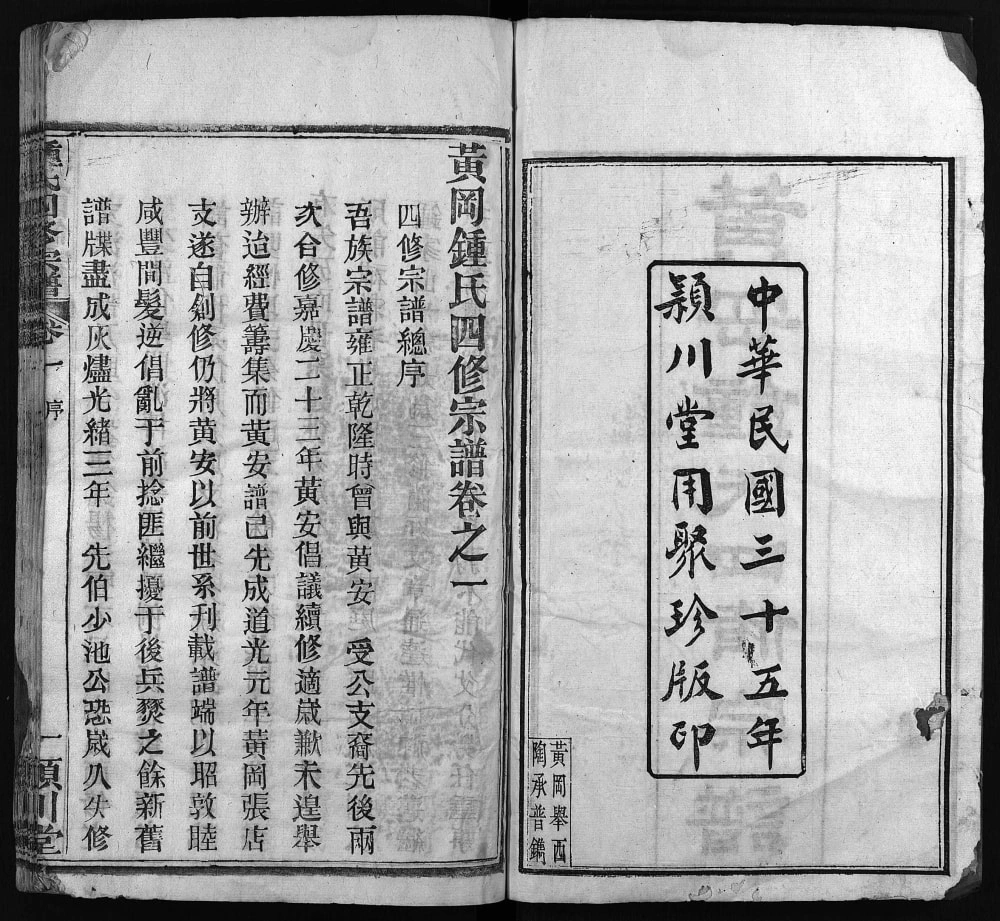 中華民國三十五年
潁川堂用聚珍版印
黃岡舉西
陶承普鐫
黃岡鍾氏四修宗譜卷之一
四修宗譜總序
吾族宗譜雍正乾隆時曾與黃安　受公支裔先後兩
次合修嘉慶二十三年黃安倡議續修適歲歉未遑舉
辦迨經費籌集而黃安譜已先成道光元年黃岡張店
支遂自剏修仍將黃安以前世系刊載譜端以昭敦睦
咸豐間髮逆倡亂于前捻匪繼擾于後兵燹之餘新舊
譜牒盡成灰燼光緒三年　先伯少池公恐歲久失修
鍾氏四修宗譜　卷一　序　一　潁川堂